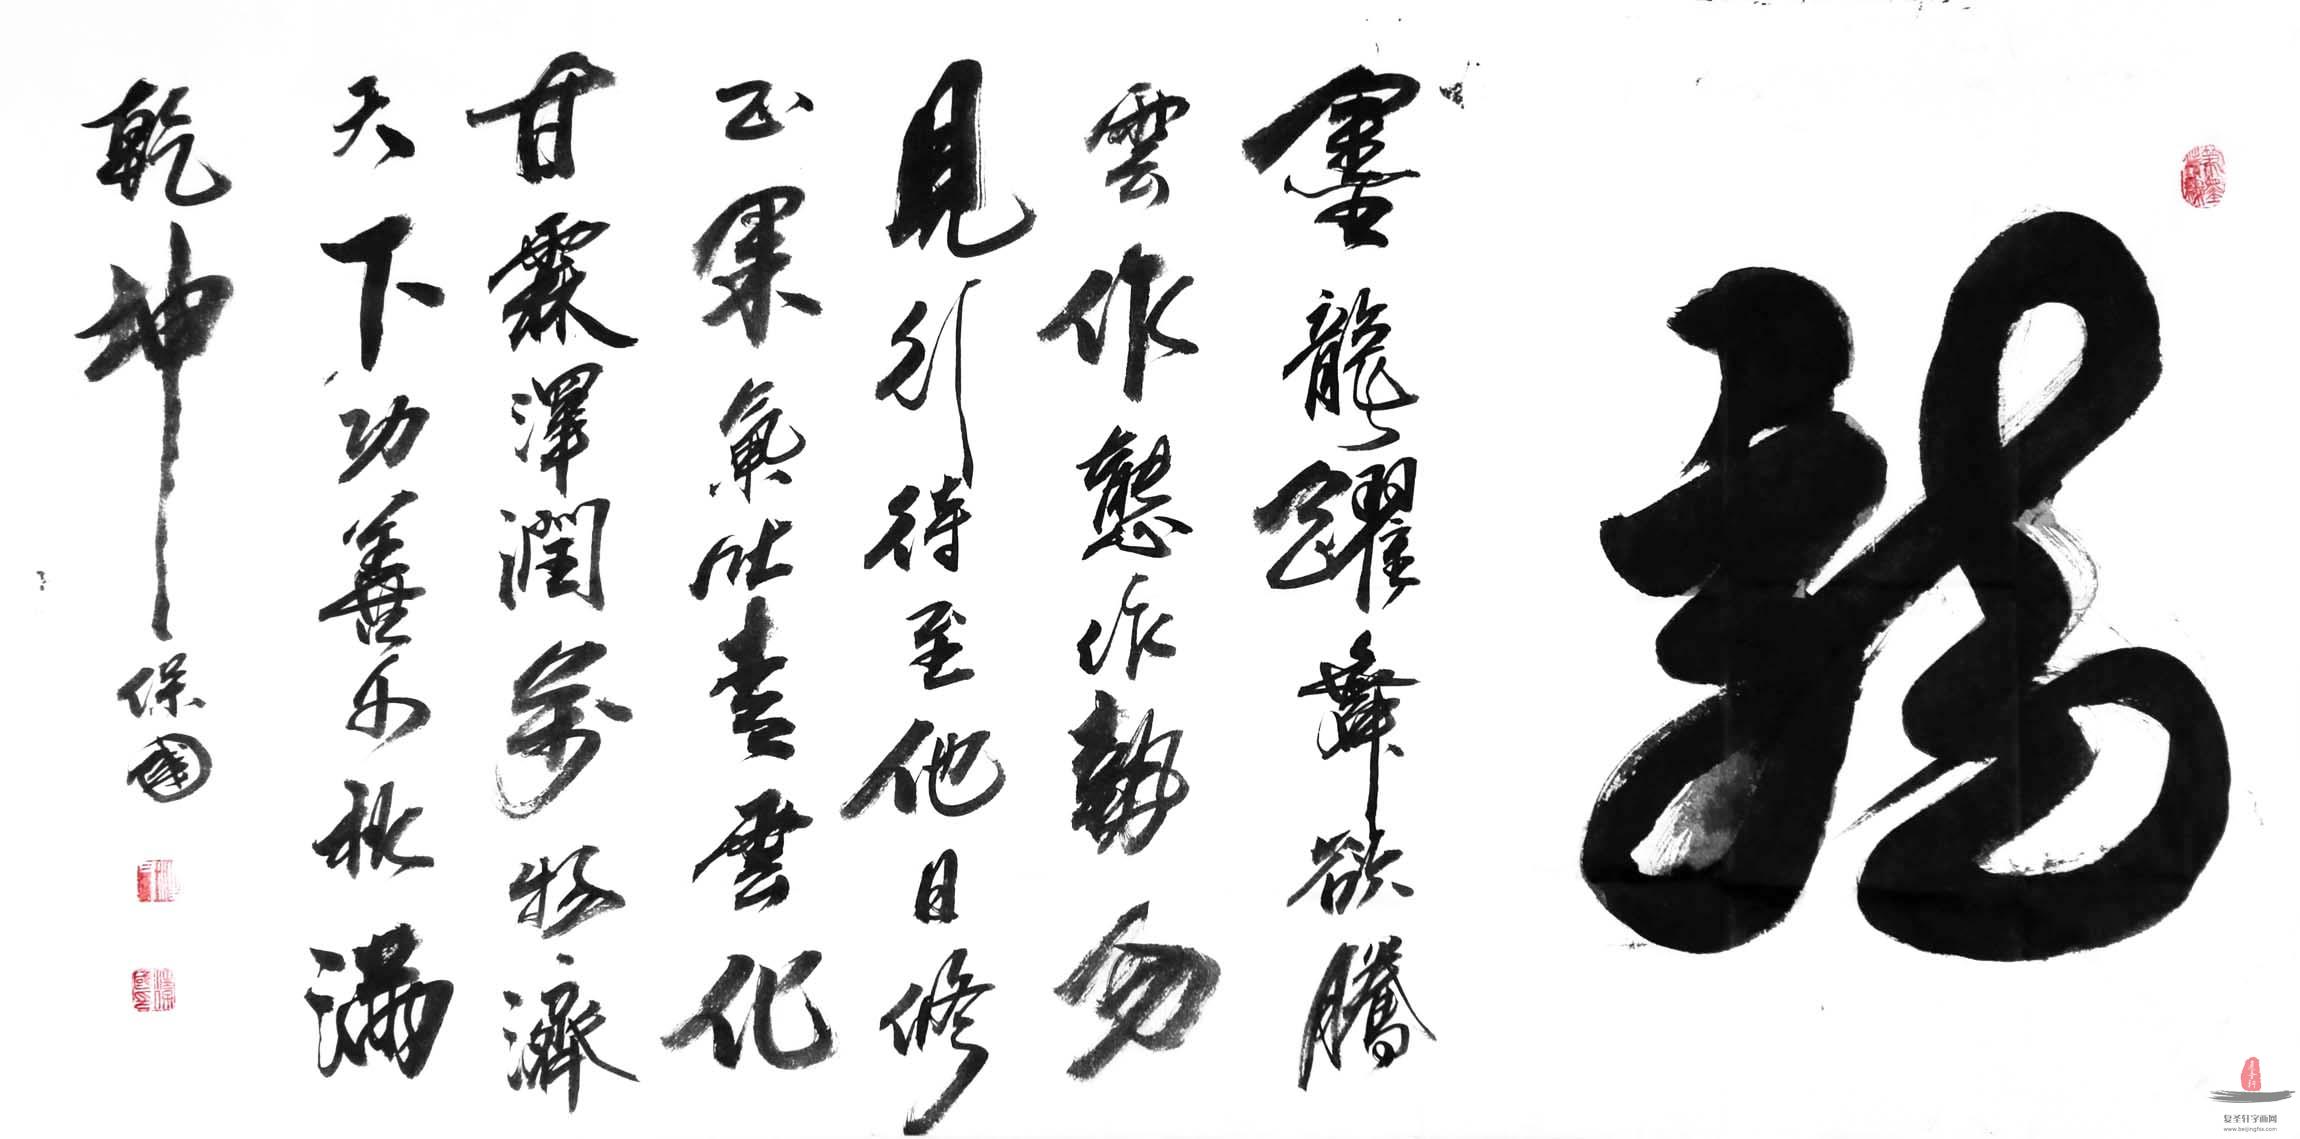 龍
墨龍躍舞欲騰
雲作態作勢勿
見引待至他日修
正果氣吐青雲化
甘霖澤潤萬物濟
天下功善千秋滿
乾坤 保國
复圣轩字画网
www.beijingfsx.com